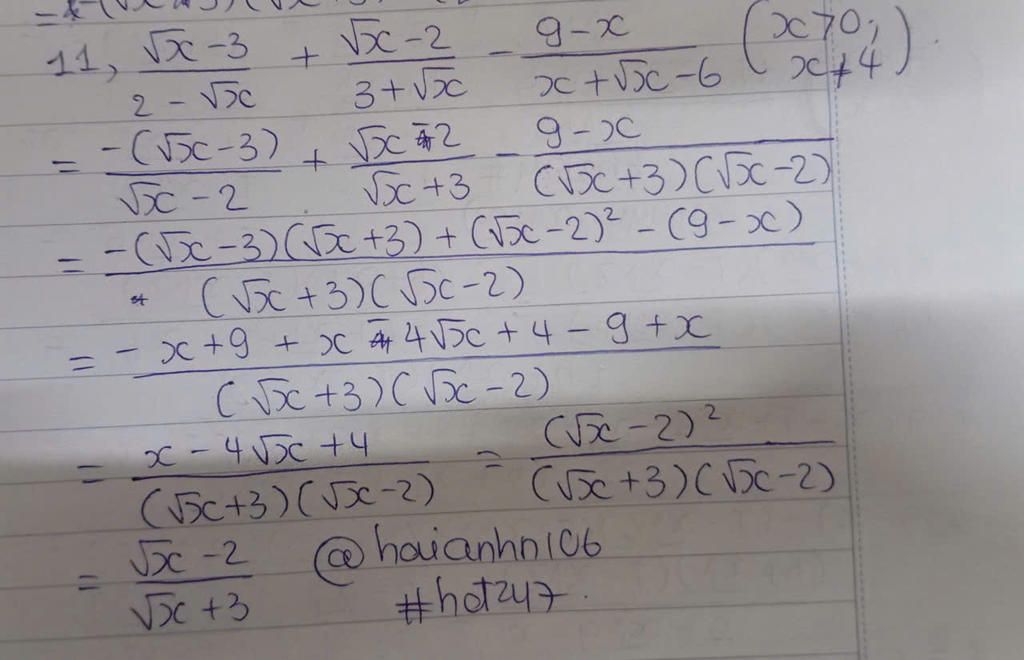 11, (√x - 3)/(2 - √x) + (√x - 2)/(3 + √x) - (9 - x)/(x + √x - 6) (x > 0; x ≠ 4)
= -(√x - 3)/(√x - 2) + (√x - 2)/(√x + 3) - (9 - x)/((√x + 3)(√x - 2))
= (-(√x - 3)(√x + 3) + (√x - 2)² - (9 - x))/((√x + 3)(√x - 2))
= (-x + 9 + x - 4√x + 4 - 9 + x)/((√x + 3)(√x - 2))
= (x - 4√x + 4)/((√x + 3)(√x - 2)) = (√x - 2)²/((√x + 3)(√x - 2))
= (√x - 2)/(√x + 3) @haianhn106
#hot247.